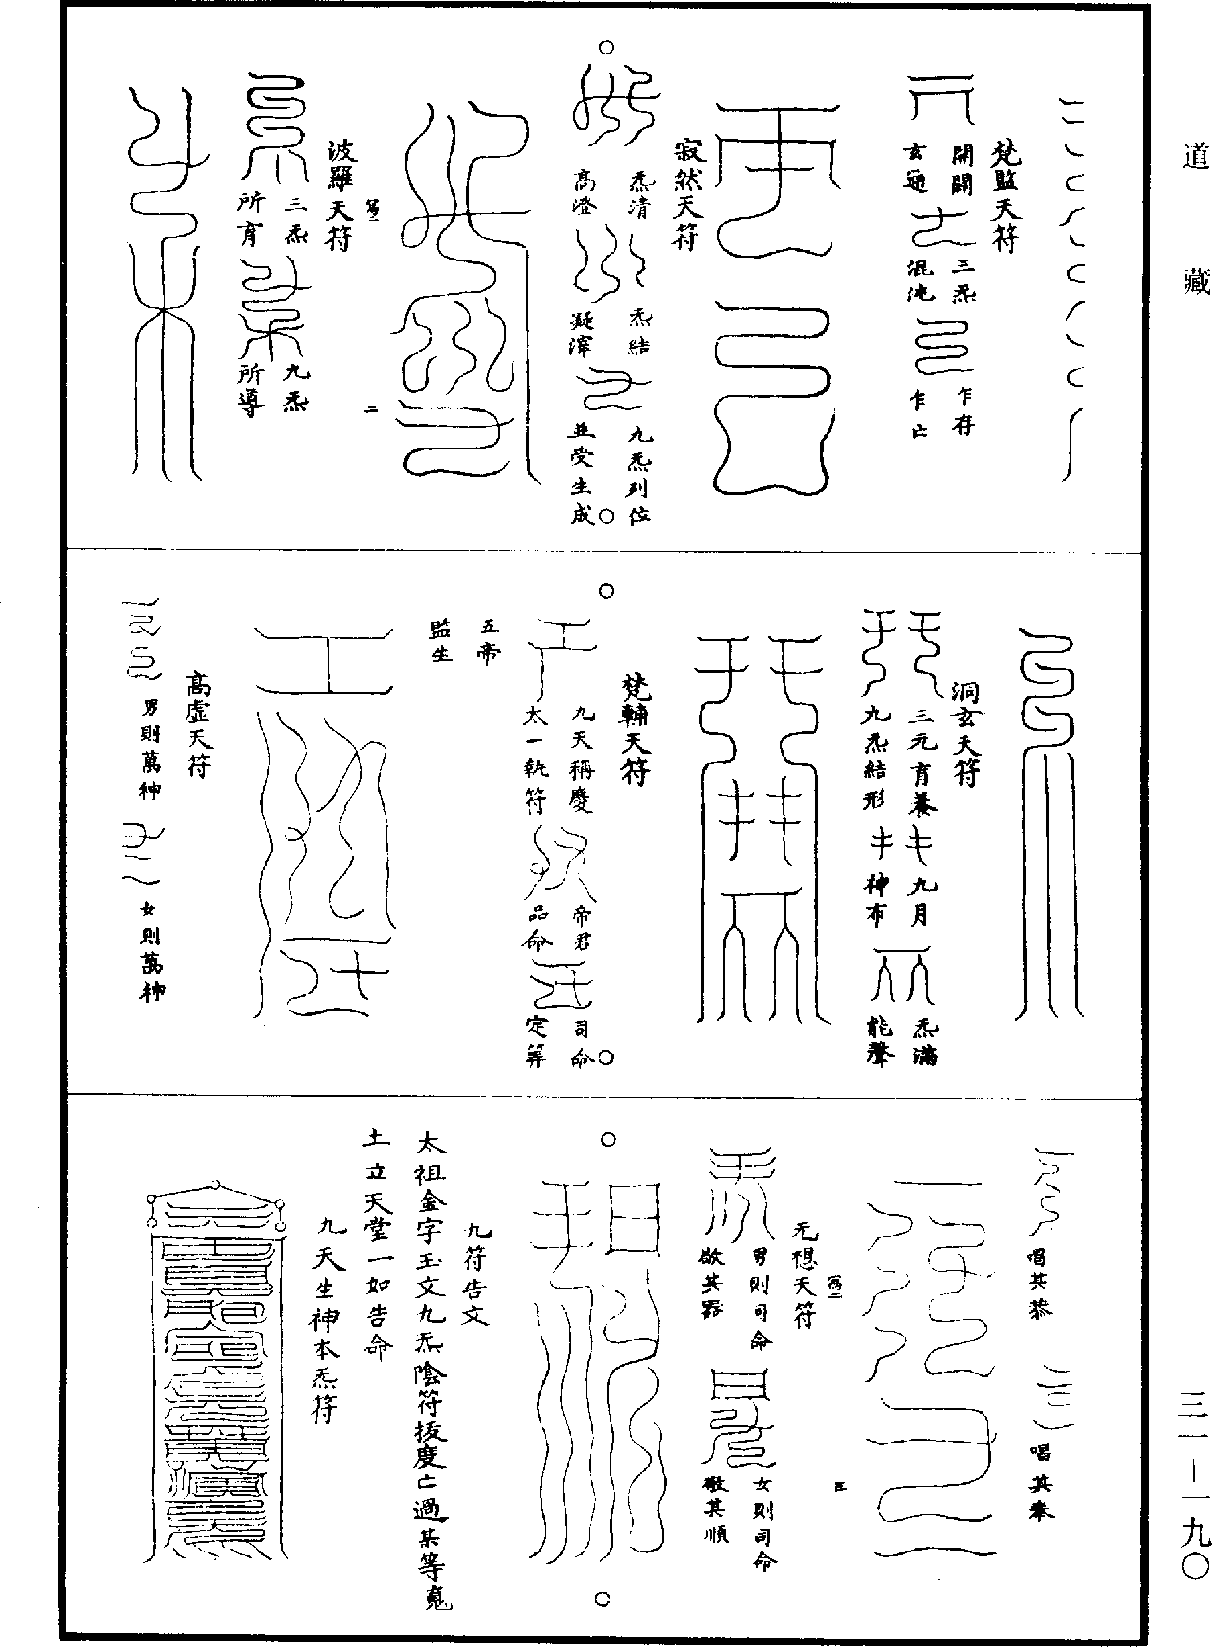 道藏
三一—一九〇
梵監天符
開闢玄通
三炁混沌
乍存乍亡
寂然天符
炁清高澄
炁結凝滓
九炁列位並受生成
寫二
波羅天符
三炁所育
九炁所導
二
洞玄天符
三元育養九炁結形
九月神布
炁滿能聲
梵輔天符
九天稱慶太一執符
帝君品命
司命定筭
五帝監生
高虛天符
男則萬神
女則萬神
唱其恭
唱其奉
寫二
无想天符
男則司命敬其
女則司命敬其順
三
九符告文
太祖金字玉文九炁陰符拔度亡過某等䰟
土立天堂一如告命
九天生神本炁符